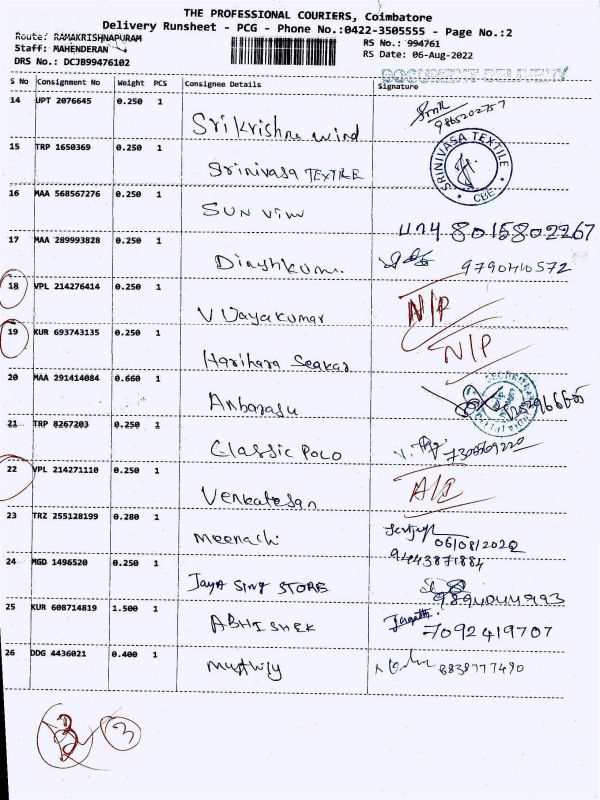 THE PROFESSIONAL COURIERS, Coimbatore
Delivery Runsheet - PCG - Phone No.:0422-3505555 - Page No.:2
Route: RAMAKRISHNAPURAM
RS No.: 994761
Staff: MAHENDERAN
RS Date: 06-Aug-2022
DRS No.: DCJB99476102
DOCUMENT DELIVERY
S No Consignment No Weight PCS Consignee Details Signature
14 UPT 2076645 0.250 1 Srikrishna wind
15 TRP 1650369 0.250 1 Srinivasa TEXTILE SRINIVASA TEXTILE CBE
16 MAA 568567276 0.250 1 SUN 8015802267
17 MAA 289993828 0.250 1
18 VPL 214276414 0.250 1 VIJayakumar N/P
19 KUR 693743135 0.250 1 Harihara N/P
20 MAA 291414084 0.660 1 Anbarasu
21 TRP 8267203 0.250 1 Classic POLO
22 VPL 214271110 0.250 1 Venkatesan
23 TRZ 255128199 0.280 1 Meenachi 06/08/2022
9443871884
24 MGD 1496520 0.250 1 Jaya STORE
25 KUR 608714819 1.500 1 ABHISHEK 7092419707
26 DDG 4436021 0.400 1 8838777490
3 3